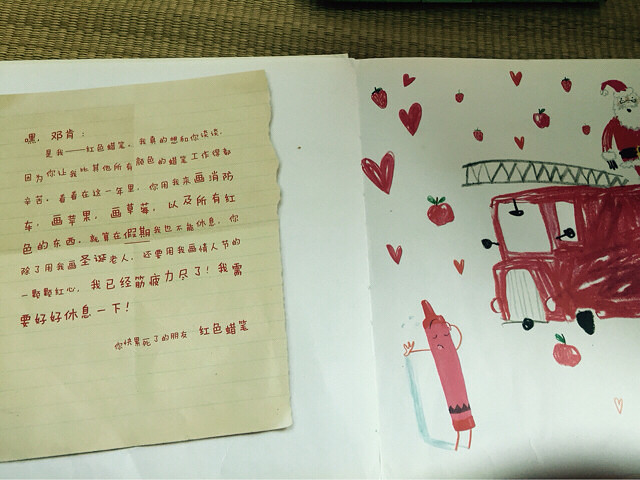 嘿，邓肯：
是我——红色蜡笔。我真的想和你谈谈，
因为你让我比其他所有颜色的蜡笔工作得都
辛苦。看看在这一年里，你用我来画消防
车，画苹果，画草莓，以及所有红
色的东西。就算在假期我也不能休息，你
除了用我画圣诞老人，还要用我画情人节的
一颗颗红心。我已经筋疲力尽了！我需
要好好休息一下！
你快累死了的朋友 红色蜡笔